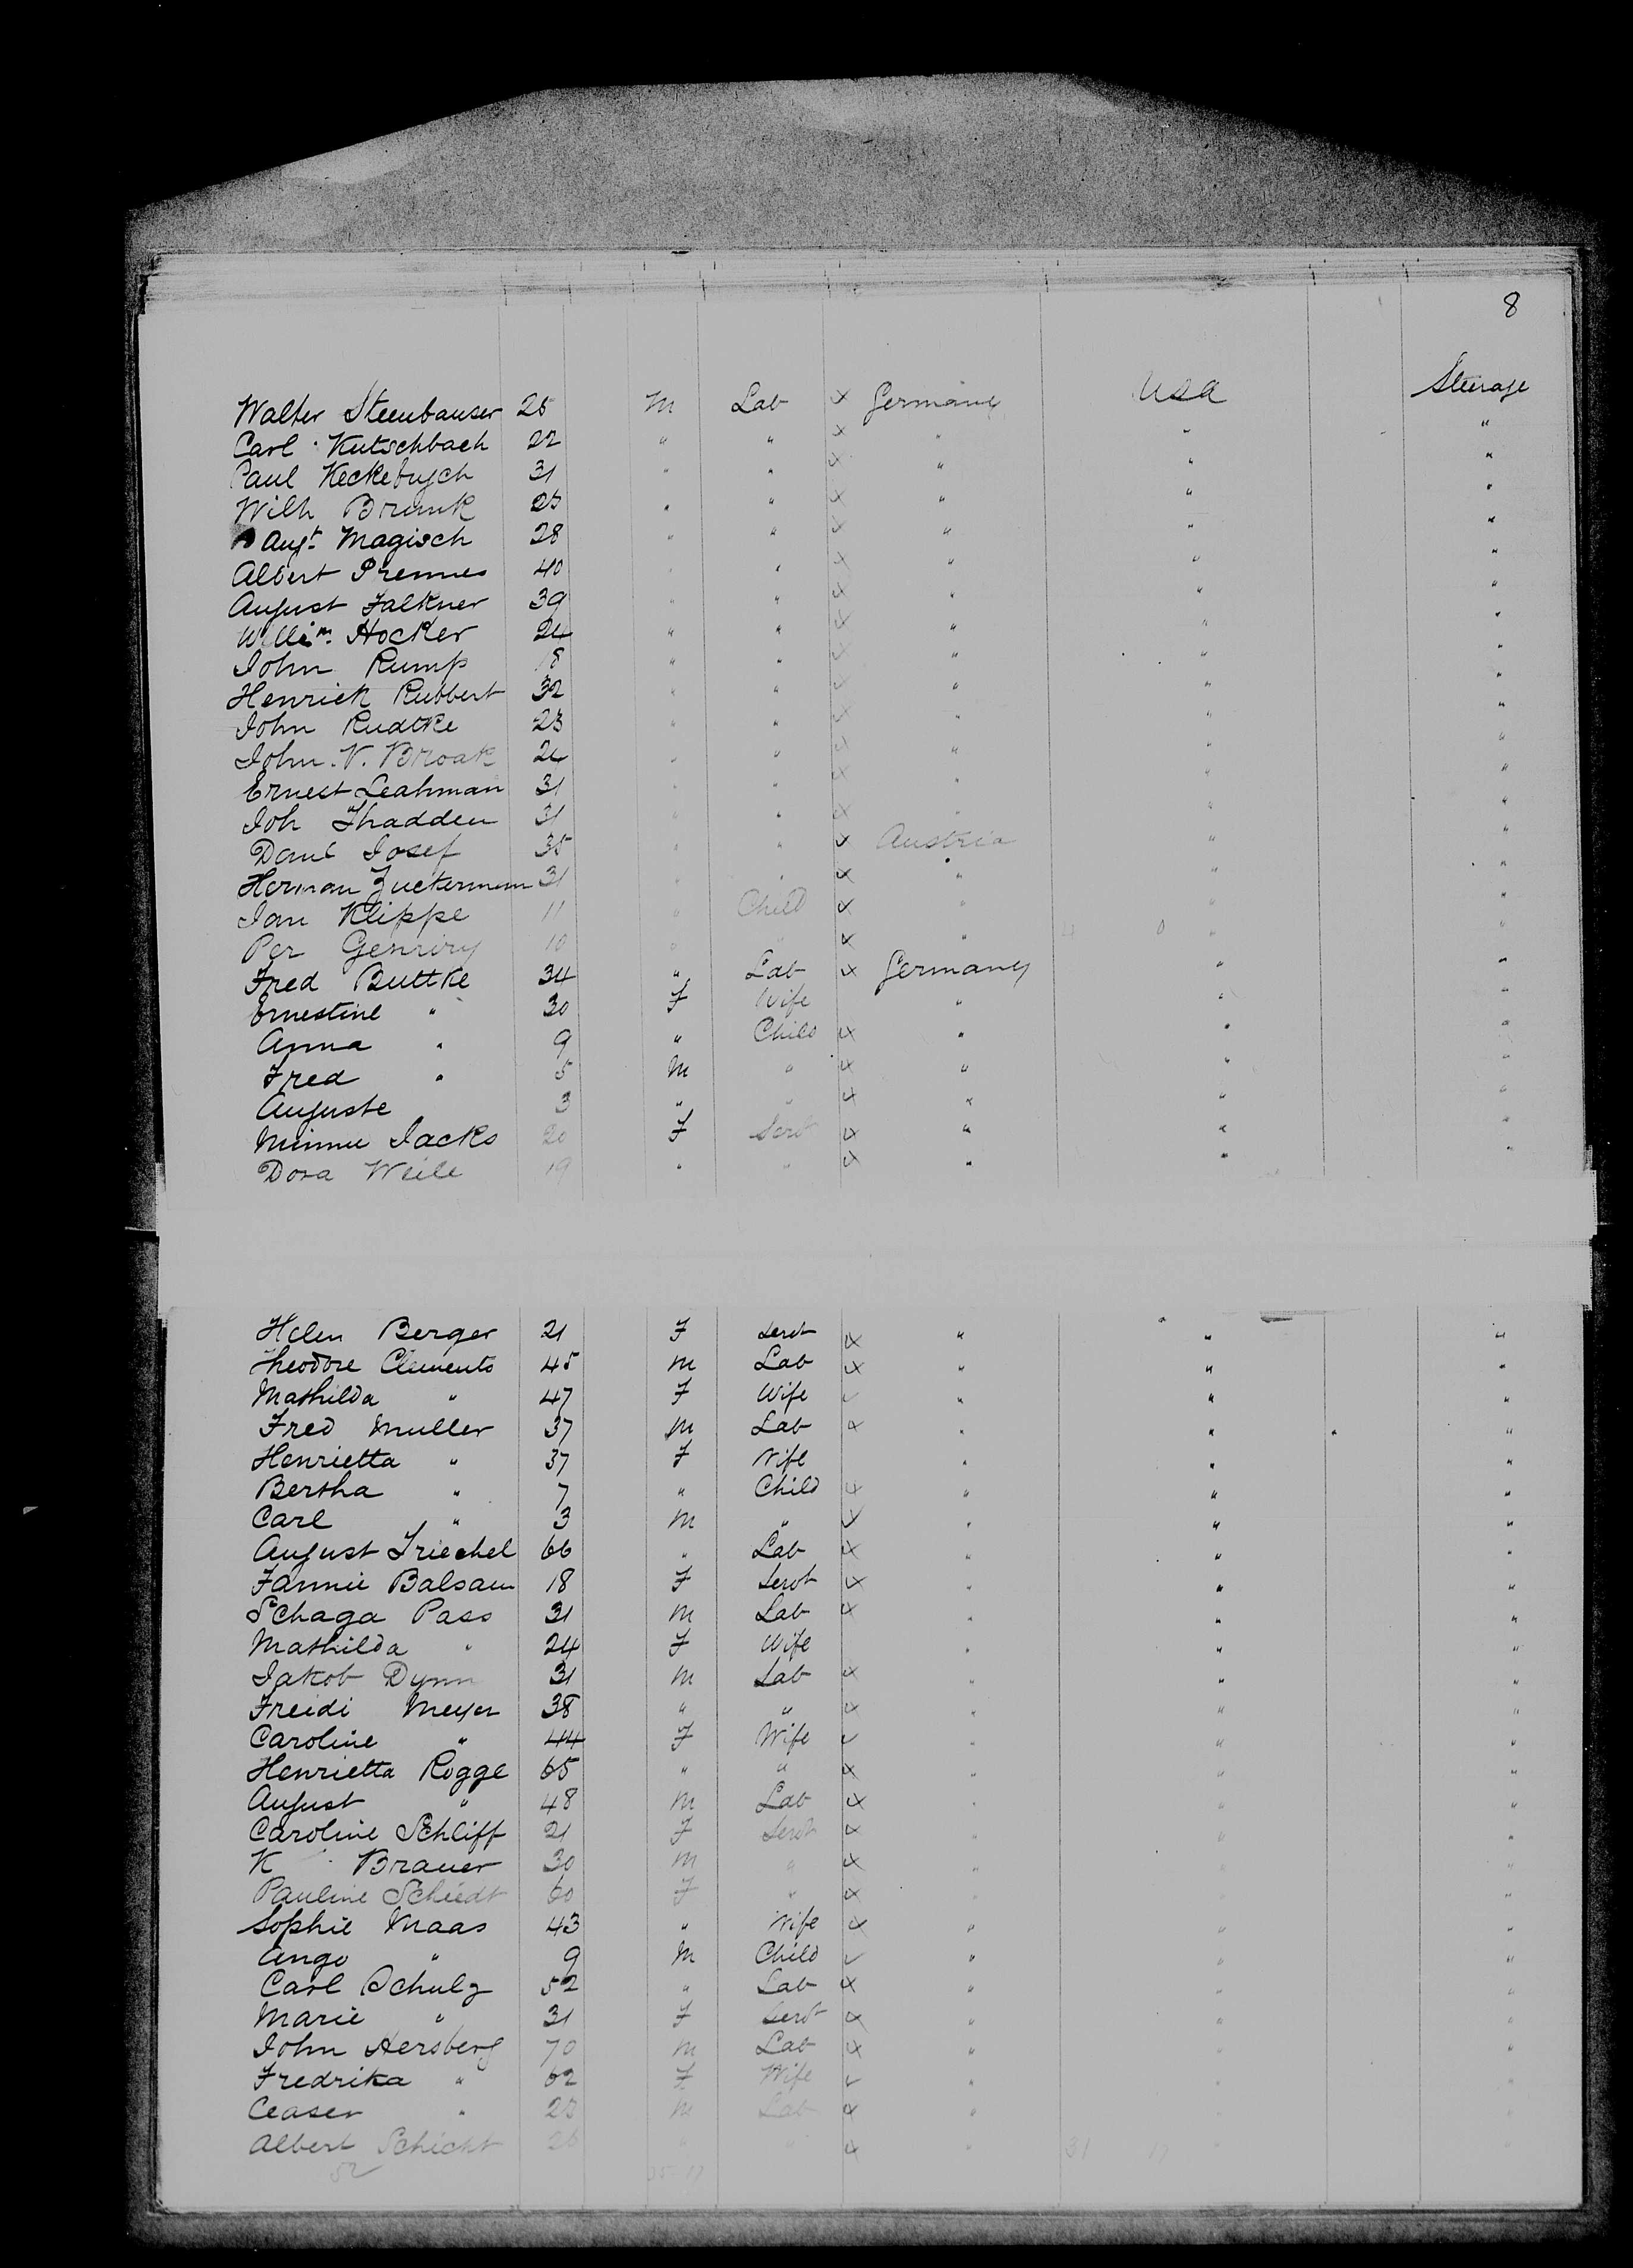 8
Walter Steenbauser 25 M Lab x Germany USA Steerage
Carl Kutschbach 22 " " x " " "
Paul Keckebusch 31 " " x " " "
Wilh Brunk 25 " " x " " "
Augt. Magisch 28 " " x " " "
Albert Premmes 40 " " x " " "
August Falkner 39 " " x " " "
Willim. Hocker 24 " " x " " "
John Rump 18 " " x " " "
Henrich Rubbert 32 " " x " " "
John Rudtke 23 " " x " " "
John. V. Broak 24 " " x " " "
Ernest Leahman 31 " " x " " "
Joh Thadden 31 " " x " " "
Josef 35 " " x Austria " "
Herman Zuckermann 31 " " x " " "
Jan Klippe 11 " Child x " " "
Per 10 " " x " 4 0 " "
Fred Buttke 34 " Lab x Germany " "
Ernestine " 30 F Wife " " "
Anna " 9 " Child x " " "
Fred " 5 M " x " " "
Auguste 3 " " x " " "
Minnie Jacks 20 F Servt x " " "
Dora Weile 19 " " x " " "
Helen Berger 21 F Servt x " " "
Theodore Clements 45 M Lab x " " "
Mathilda " 47 F Wife " " "
Fred Muller 37 M Lab x " " "
Henrietta " 37 F Wife " " "
Bertha " 7 " Child x " " "
Carl " 3 M " x " " "
August Triechel 66 " Lab x " " "
Fannie Balsam 18 F Servt x " " "
Schaga Pass 31 M Lab x " " "
Mathilda " 24 F Wife " " "
Jakob Dymn 31 M Lab x " " "
Freidi Meyer 38 " " x " " "
Caroline " 44 F Wife " " "
Henrietta Rogge 65 " " x " " "
August " 48 M Lab x " " "
Caroline Schliff 21 F Servt x " " "
K Brauer 30 M " x " " "
Pauline Schiedt 60 F " x " " "
Sophie Maas 43 " Wife x " " "
Ango " 9 M Child " " "
Carl Schulz 52 " Lab x " " "
Marie " 31 F Servt x " " "
John Hersberg 70 M Lab x " " "
Fredrika " 62 F Wife " " "
Ceaser " 25 M Lab x " " "
Albert Schicht 26 " " x " 31 17 " "
52 35 17